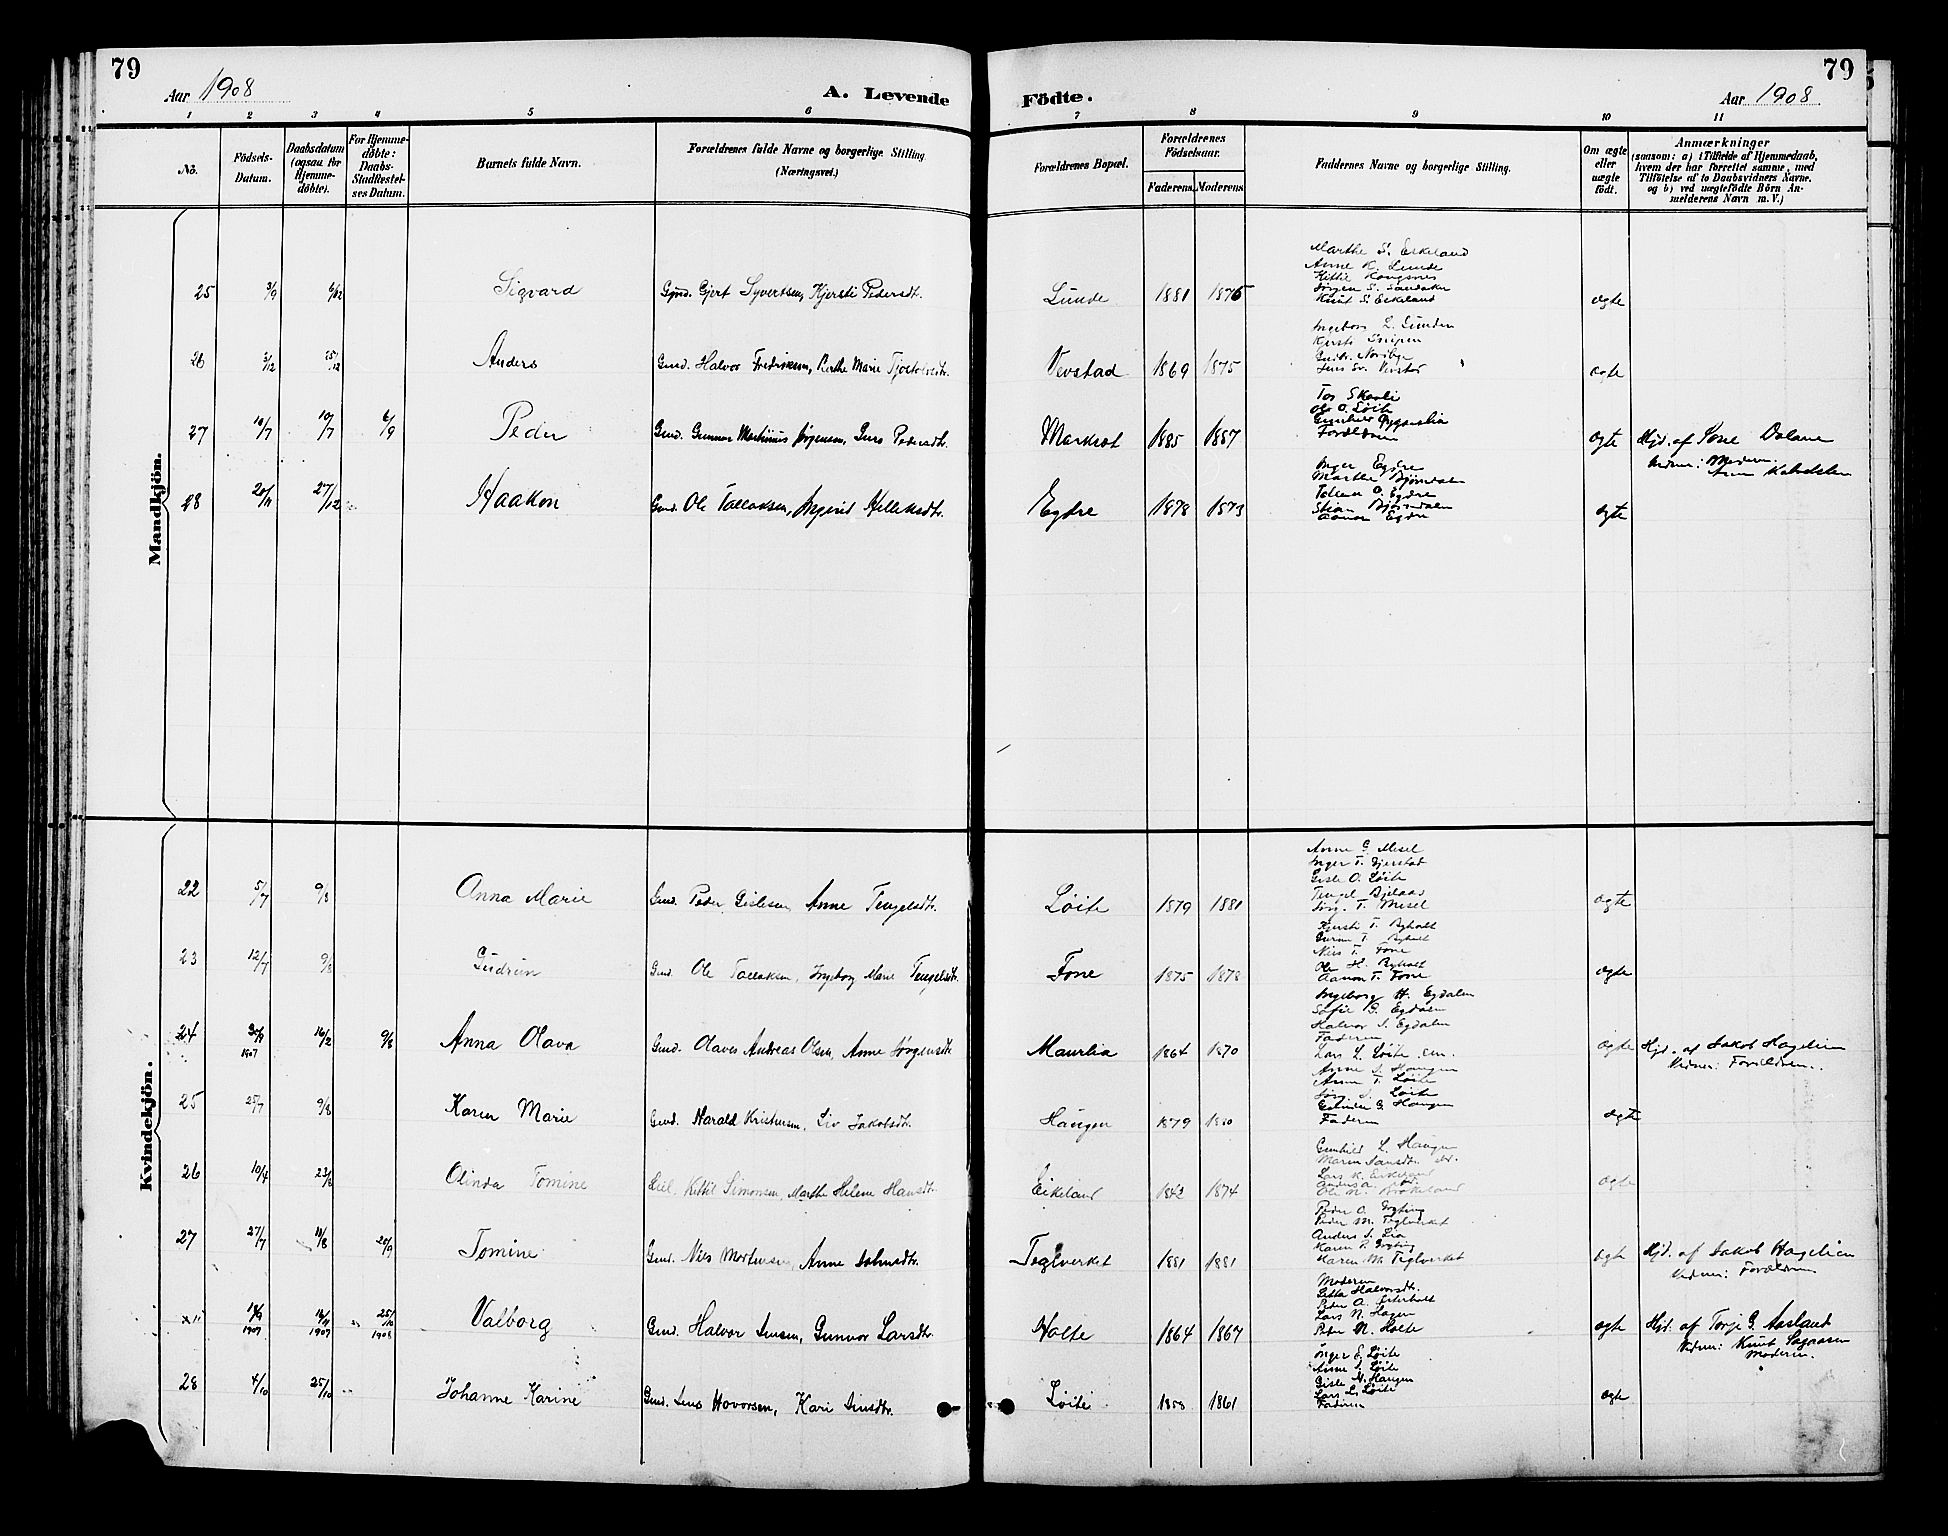 79
Aar 1908
A. Levende
Födte.
Aar 1908
79
1 2 3 4 5 6 7 8 9 10 11
No.
Födsels-
Datum.
Daabsdatum
(ogsaa for
Hjemme-
döbte).
For Hjemme-
döbte:
Daabs-
Stadfæstel-
ses Datum.
Barnets fulde Navn.
Forældrenes fulde Navne og borgerlige Stilling
(Næringsvei.)
Forældrenes Bopæl.
Forældrenes
Födselsaar.
Faderens. Moderens
Faddernes Navne og borgerlige Stilling.
Om ægte
eller
uægte
födt.
Anmærkninger
(saasom: a) i Tilfælde af Hjemmedaab,
hvem der har forrettet samme, med
Tilföielse af to Daabsvidners Navne.
og b) ved uægtefödte Börn An-
melderens Navn m. V.)
Mandkjön.
25 3/9 6/12 Sigvard Gmd. Gjert Syvertsen, Kjersti Pedersdt. Lunde 1881 1876 ægte
Marthe S. Eikeland
Anne K. Lunde
Kittil Kongsnes
Jørgen S. Sandaker
Knut S. Eikeland
26 3/12 25/12 Anders Gmd. Halvor Fredriksen, Berthe Marie Tjostolvsdt. Vevstad 1869 1875 ægte
Ingeborg L. Lunden
27 10/7 10/7 6/9 Peder Gmd. Gunnar Martinius Jørgensen, Guro Pedersdt. Markset 1885 1887 ægte Hjd. af Tone Dalane
Vidner: Moderen.
Tor Skarli
Ole O. Løite
Forældrene
28 20/11 27/12 Haakon Gmd. Ole Tallaksen, Ingerid Kittilsdt. Egdre 1878 1873 ægte
Inger Egdre
Marthe Bjørndalen
Tallak O. Egdre
Stian Bjørndalen
Aanon Egdre
Kvindekjön.
22 5/7 9/8 Anna Marie Gmd. Peder Gislesen, Anne Tengelsdt. Løite 1879 1881 ægte
Anne G. Mesel
Inger T. Gjerstad
Gisle O. Løite
Tengel Bjelaas
Jørg. T. Mesel
23 12/7 9/8 Gudrun Gmd. Ole Tallaksen, Ingeborg Marie Tengelsdt. Fone 1875 1878 ægte
Kjersti T. Byholt
Gurine T. Byholt
Nils T. Fone
Ole H. Byholt
Aanon T. Fone
24 30/9 1907 16/2 9/8 Anna Olava Gmd. Olaves Andreas Olsen, Anne Jørgensdt. Maurlia 1864 1870 ægte Hjd. af Jakob Hagelien
Vidner: Forældrene.
Ingeborg H. Egdalen
Sofie G. Egdalen
Halvor J. Egdalen
Faderen
Lars L. Løite sen.
25 25/7 9/8 Karen Marie Gmd. Harald Kristensen, Liv Jakobsdt. Haugen 1879 1880 ægte
Anne J. Haugen
Anne T. Løite
Jørg. J. Løite
Faderen
26 10/4 23/8 Olinda Tomine Kittil Simonsen, Marthe Helene Hansdt. Eikeland 1842 1874 ægte
Gunhild L. Haugen
Lars K. Eikeland
27 27/7 11/8 20/9 Tomine Gmd. Nils Mortensen, Anne Johnsdt. Teglverket 1881 1881 ægte Hjd. af Jakob Hagelien
Vidner: Forældrene
Peder M. Teglverket
Anders J. Lia
Karen M. Teglverket
18/9 1907 14/11 1907 25/10 1908 Valborg Gmd. Halvor Jensen, Gunvor Larsdt. Holte 1864 1867 ægte Hjd. af Torje G. Aasland
Vidner: Knut Sagaasen
Moderen.
Moderen
Lars N. Hagen
Peder N. Holte
28 4/10 25/10 Johanne Karine Gmd. Jens Hovorsen, Kari Jensdt. Løite 1861 ægte
Inger E. Løite
Anne J. Løite
Gisle H. Haugen
Lars L. Løite
Faderen